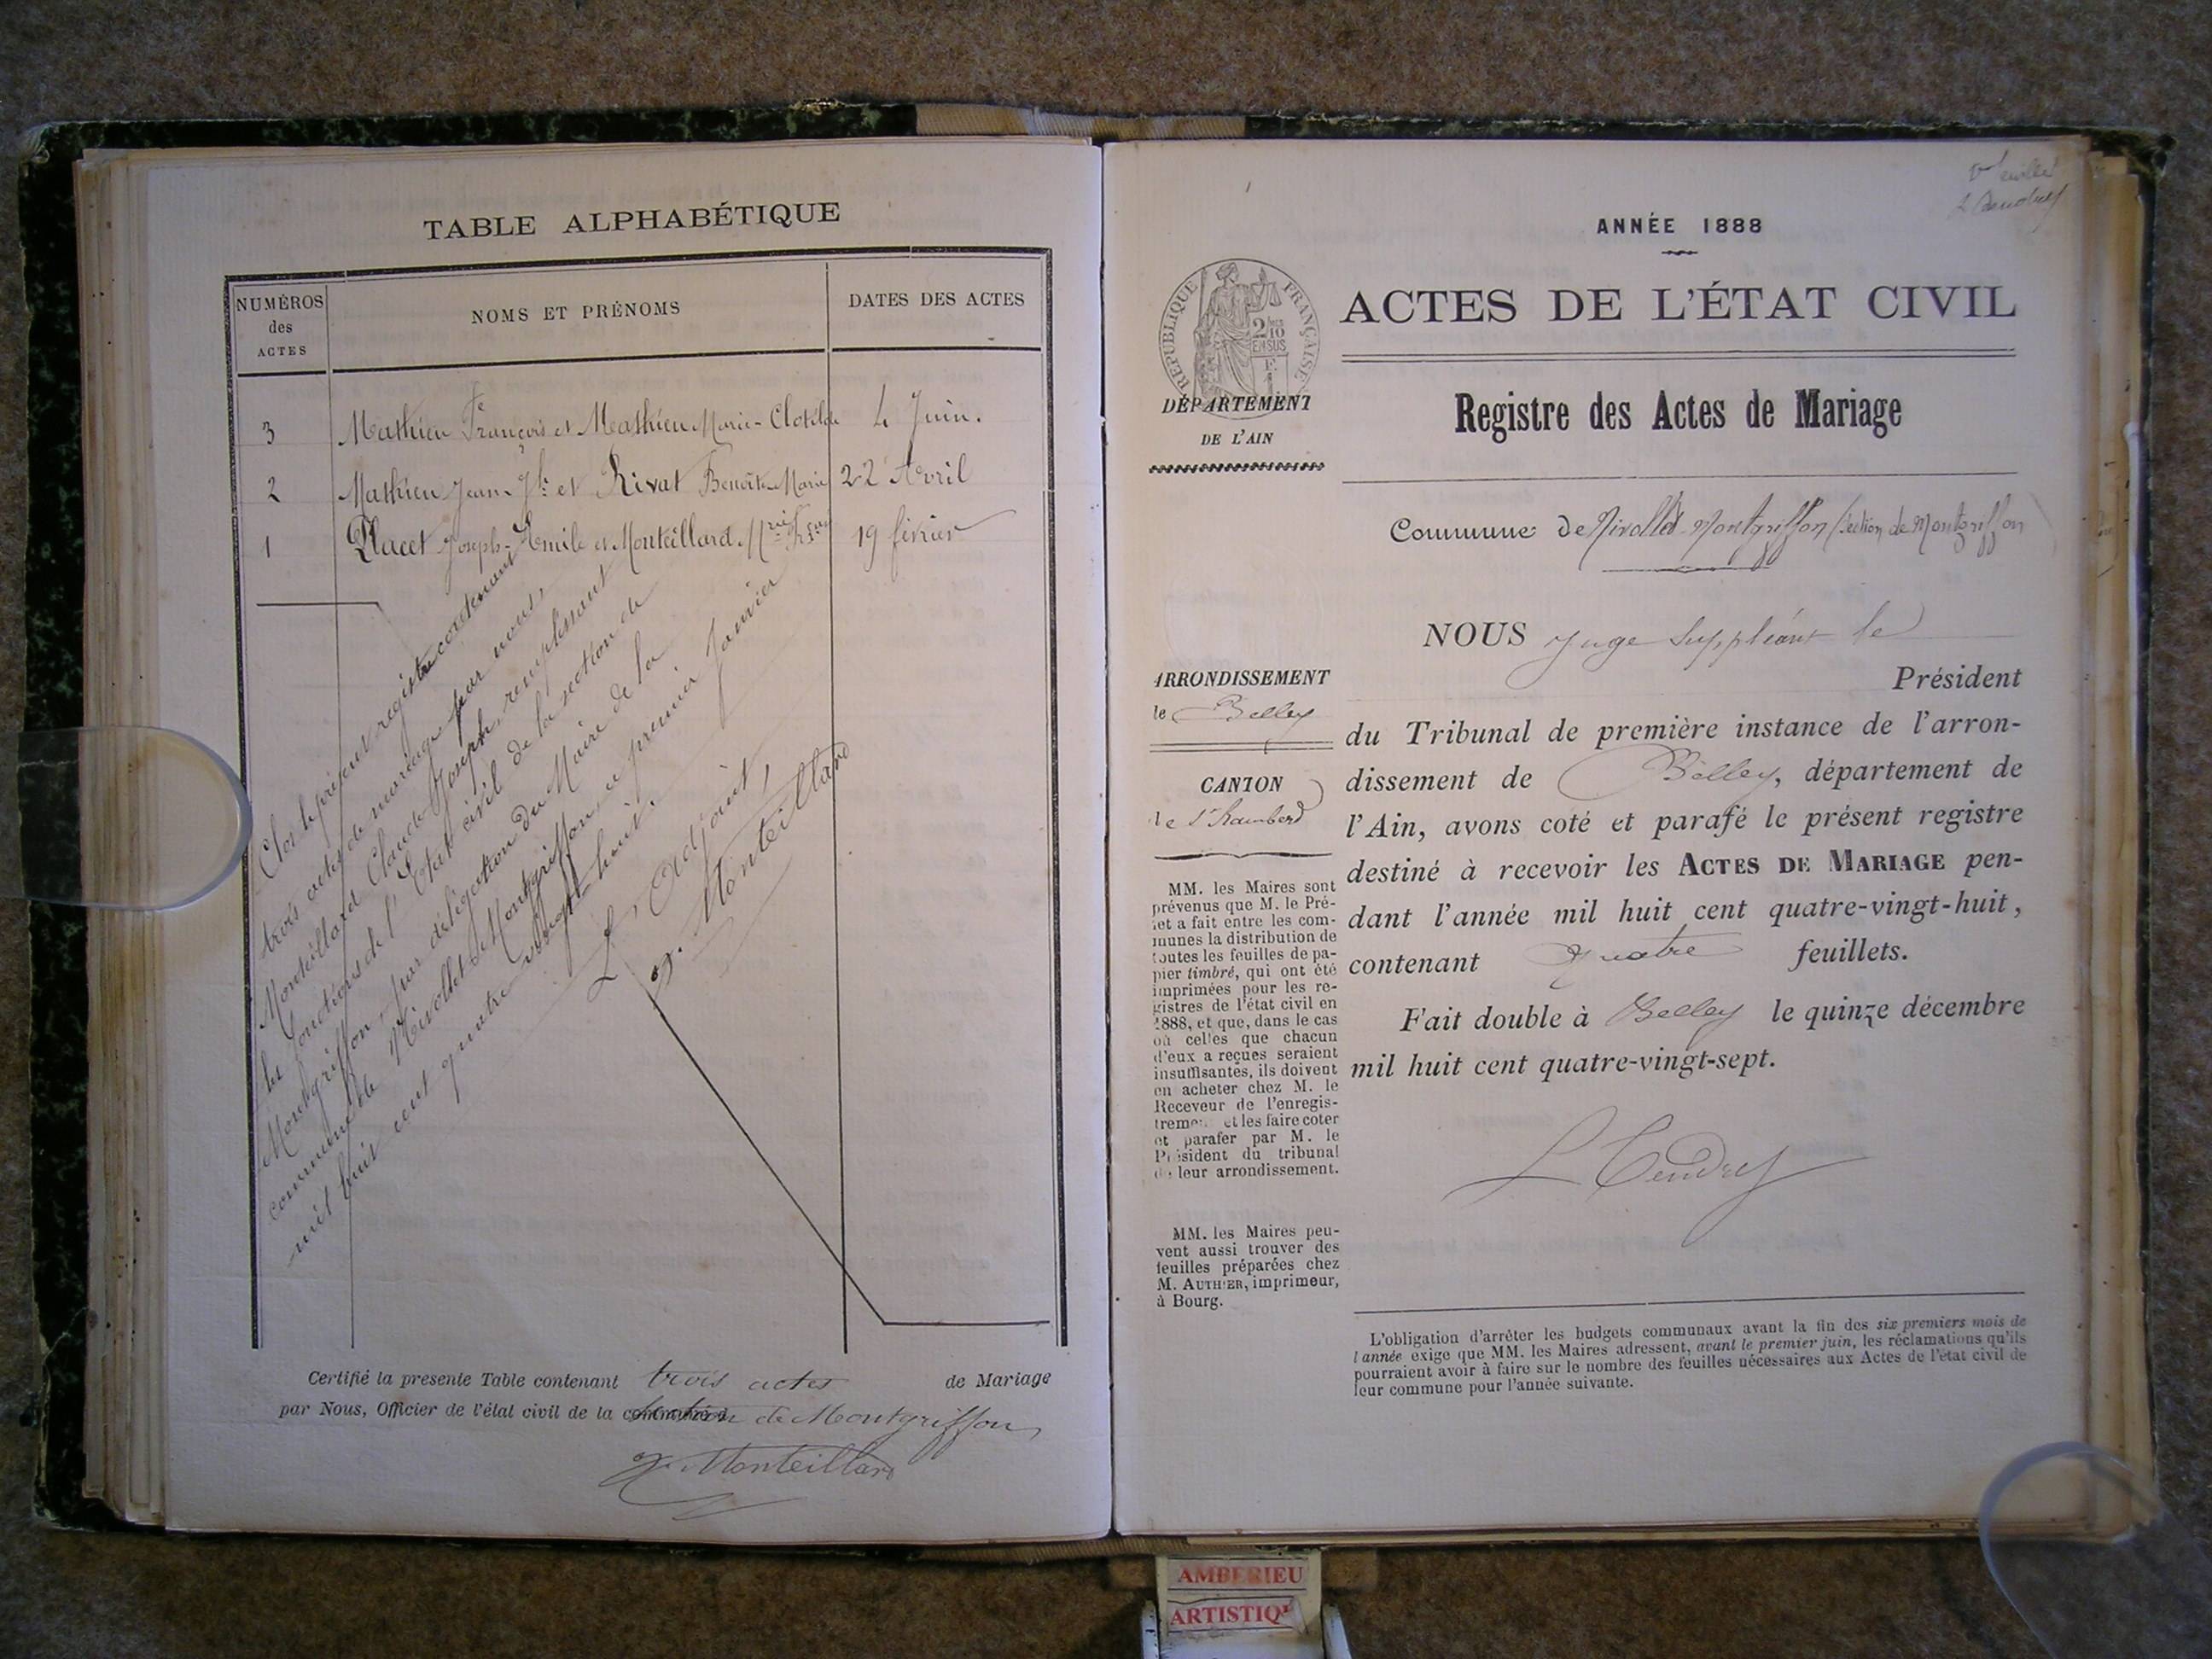 TABLE ALPHABÉTIQUE
NUMÉROS des ACTES
NOMS ET PRÉNOMS
DATES DES ACTES
3 Mathieu François et Mathieu Marie-Clotilde 4 Juin.
2 Mathieu Jean-Jh et Rivat Benoîte-Marie 22 Avril
1 Placet Joseph-Emile et Monteillard Mrie 19 février
Clos le présent registre contenant
trois actes de mariage par nous,
Monteillard Claude Joseph, remplissant
les fonctions de l'Etat civil de la section de
Montgriffon, par délégation du Maire de la
commune de Nivollet-Montgriffon, le premier Janvier
mil huit cent quatre vingt huit.
L'Adjoint,
J. Monteillard
Certifié la presente Table contenant trois actes de Mariage
par Nous, Officier de l'état civil de la section de Montgriffon
J. Monteillard
ANNÉE 1888
RÉPUBLIQUE FRANÇAISE
ACTES DE L'ÉTAT CIVIL
DÉPARTEMENT
DE L'AIN
Registre des Actes de Mariage
Commune de Nivollet-Montgriffon (Section de Montgriffon
NOUS Juge Suppléant le
Président
du Tribunal de première instance de l'arron-
dissement de Belley, département de
l'Ain, avons coté et parafé le présent registre
destiné à recevoir les ACTES DE MARIAGE pen-
dant l'année mil huit cent quatre-vingt-huit,
contenant quatre feuillets.
Fait double à Belley le quinze décembre
mil huit cent quatre-vingt-sept.
ARRONDISSEMENT
de Belley
CANTON
de St Rambert
MM. les Maires sont
prévenus que M. le Pré-
fet a fait entre les com-
munes la distribution de
toutes les feuilles de pa-
pier timbré, qui ont été
imprimées pour les re-
gistres de l'état civil en
1888, et que, dans le cas
où celles que chacun
d'eux a reçues seraient
insuffisantes, ils doivent
en acheter chez M. le
Receveur de l'enregis-
trement et les faire coter
et parafer par M. le
Président du tribunal
de leur arrondissement.
MM. les Maires peu-
vent aussi trouver des
feuilles préparées chez
M. AUTHIER, imprimeur,
à Bourg.
L'obligation d'arrêter les budgets communaux avant la fin des six premiers mois de
l'année exige que MM. les Maires adressent, avant le premier juin, les réclamations qu'ils
pourraient avoir à faire sur le nombre des feuilles nécessaires aux Actes de l'état civil de
leur commune pour l'année suivante.
AMBERIEU
ARTISTIQU